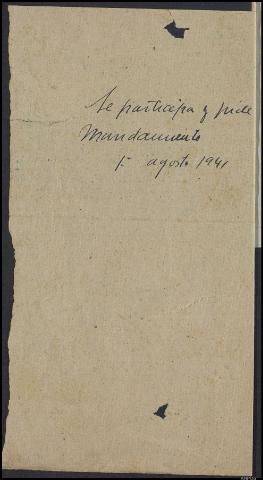 Se participa y pide
Mandamiento
1º agosto 1941